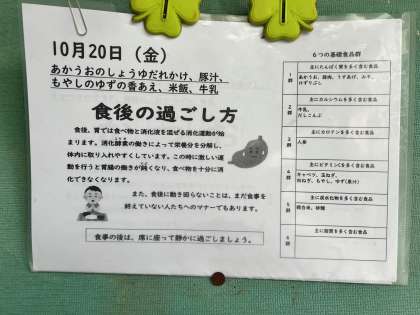 10月20日（金）
あかうおのしょうゆだれかけ、豚汁、
もやしのゆずの香あえ、米飯、牛乳
食後の過ごし方
食後、胃では食べ物と消化液を混ぜる消化運動が始
まります。消化酵素の働きによって栄養分を分解し、
体内に取り入れやすくしています。この時に激しい運
動を行うと胃腸の働きが鈍くなり、食べ物を十分に消
化できなくなります。
また、食後に動き回らないことは、まだ食事を
終えていない人たちへのマナーでもあります。
食事の後は、席に座って静かに過ごしましょう。
6つの基礎食品群
主にたんぱく質を多く含む食品
1群
あかうお、豚肉、うすあげ、みそ、
主にカルシウムを多く含む食品
2群
牛乳、
だしこんぶ
主にカロテンを多く含む食品
3群
人参
主にビタミンCを多く含む食品
4群
キャベツ、玉ねぎ、
もやし、ゆず（果汁）
主に炭水化物を多く含む食品
5群
精白米、砂糖
主に脂質を多く含む食品
6群